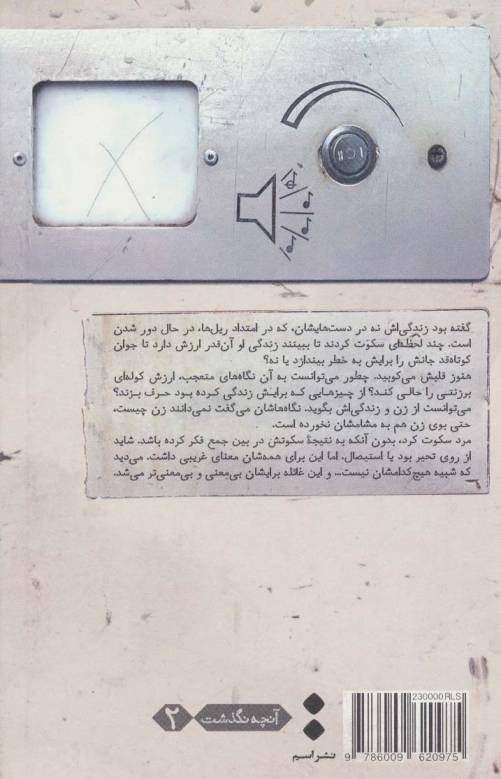 گفته بود زندگی‌اش نه در دست‌هایشان، که در امتداد ریل‌ها، در حال دور شدن
است. چند لحظه‌ای سکوت کردند تا ببینند زندگی او آن‌قدر ارزش دارد تا جوان
کوتاه‌قد جانش را برایش به خطر بیندازد یا نه؟
هنوز قلبش می‌کوبید. چطور می‌توانست به آن نگاه‌های متعجب، ارزش کوله‌ای
برزنتی را حالی کند؟ از چیزهایی که برایش زندگی کرده بود حرف بزند؟
می‌توانست از زن و زندگی‌اش بگوید. نگاه‌هاشان می‌گفت نمی‌دانند زن چیست،
حتی بوی زن هم به مشامشان نخورده است.
مرد سکوت کرد، بدون آنکه به نتیجهٔ سکوتش در بین جمع فکر کرده باشد. شاید
از روی تحیر بود یا استیصال. اما این برای همه‌شان معنای غریبی داشت. می‌دید
که شبیه هیچ‌کدامشان نیست... و این غائله برایشان بی‌معنی و بی‌معنی‌تر می‌شد.
آنچه نگذشت ۲
230000RLS
9 786009 620975
نشر اسم